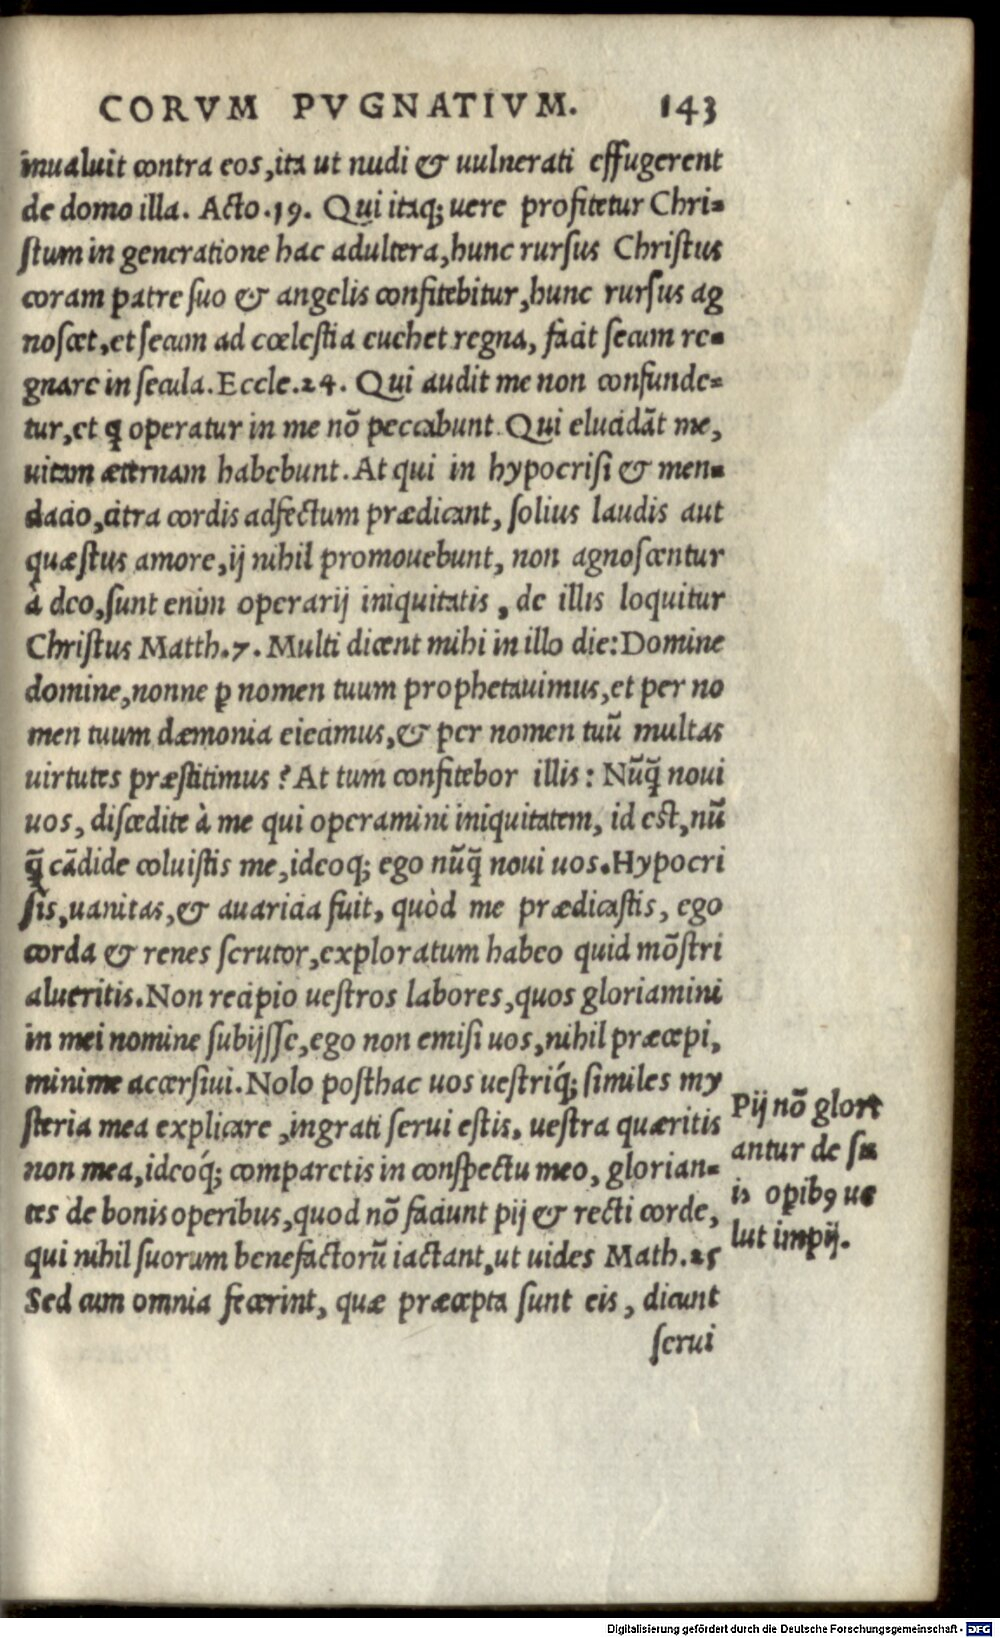 CORVM PVGNATIVM. 143
inualuit contra eos, ita ut nudi & uulnerati effugerent
de domo illa. Acto .19. Qui itaq; uere profitetur Chri-
stum in generatione hac adultera, hunc rursus Christus
coram patre suo & angelis confitebitur, hunc rursus ag
noscet, et secum ad cœlestia euehet regna, facit secum re-
gnare in secula. Eccle. 24. Qui audit me non confunde-
tur, et ꝗ operatur in me nõ peccabunt. Qui elucidãt me,
uitam æternam habebunt. At qui in hypocrisi & men-
dacio, citra cordis adfectum prædicant, solius laudis aut
quæstus amore, ij nihil promouebunt, non agnoscentur
à deo, sunt enim operarij iniquitatis, de illis loquitur
Christus Matth. 7. Multi dicent mihi in illo die: Domine
domine, nonne ꝑ nomen tuum prophetauimus, et per no
men tuum dæmonia eiecimus, & per nomen tuũ multas
uirtutes præstitimus? At tum confitebor illis: Nũq̃ noui
uos, discedite à me qui operamini iniquitatem, id est, nũ
q̃ cãdide coluistis me, ideoq; ego nũq̃ noui uos. Hypocri
sis, uanitas, & auaricia fuit, quòd me prædicastis, ego
corda & renes scrutor, exploratum habeo quid mõstri
alueritis. Non recipio uestros labores, quos gloriamini
in mei nomine subijsse, ego non emisi uos, nihil præcepi,
minime accersiui. Nolo posthac uos uestriq́; similes my
steria mea explicare, ingrati serui estis, uestra quæritis
non mea, ideoq́; comparetis in conspectu meo, glorian-
tes de bonis operibus, quod nõ faciunt pij & recti corde,
qui nihil suorum benefactorũ iactant, ut uides Math. 25
Sed cum omnia fecerint, quæ præcepta sunt eis, dicunt
serui
Pij nõ glori
antur de su
is opibꝰ ue
lut impij.
Digitalisierung gefördert durch die Deutsche Forschungsgemeinschaft - DFG